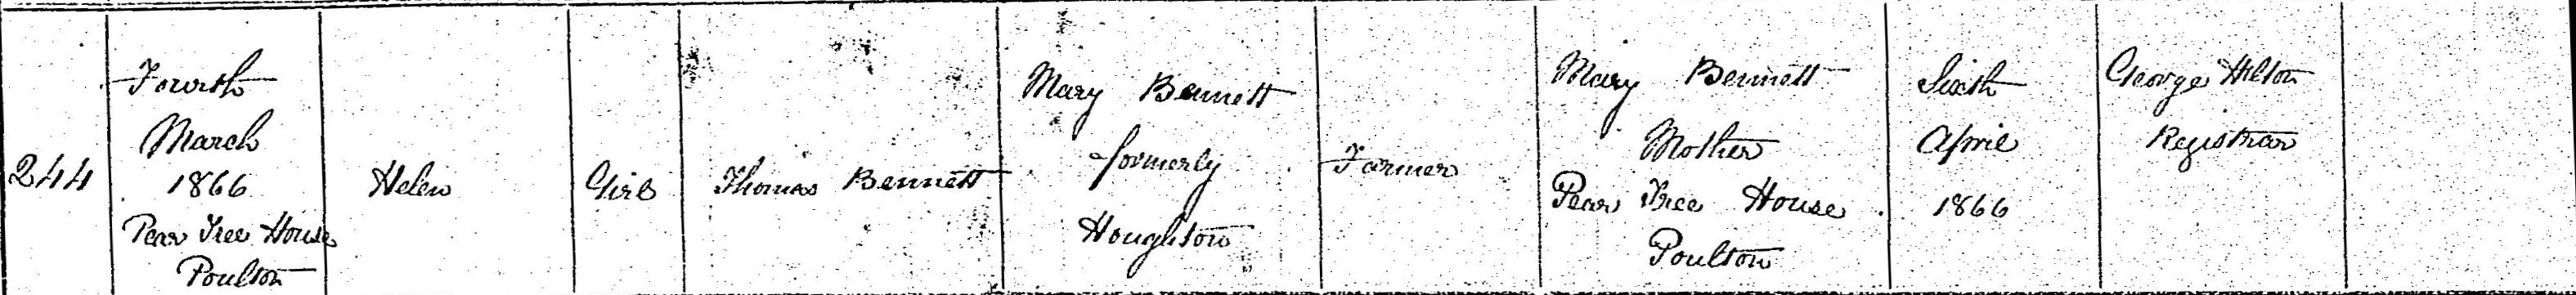 244
Fourth
March
1866
Pear Tree House
Poulton
Helen
Girl
Thomas Bennett
Mary Bennett
formerly
Houghton
Farmer
Mary Bennett
Mother
Pear Tree House
Poulton
Sixth
April
1866
George Hilton
Registrar